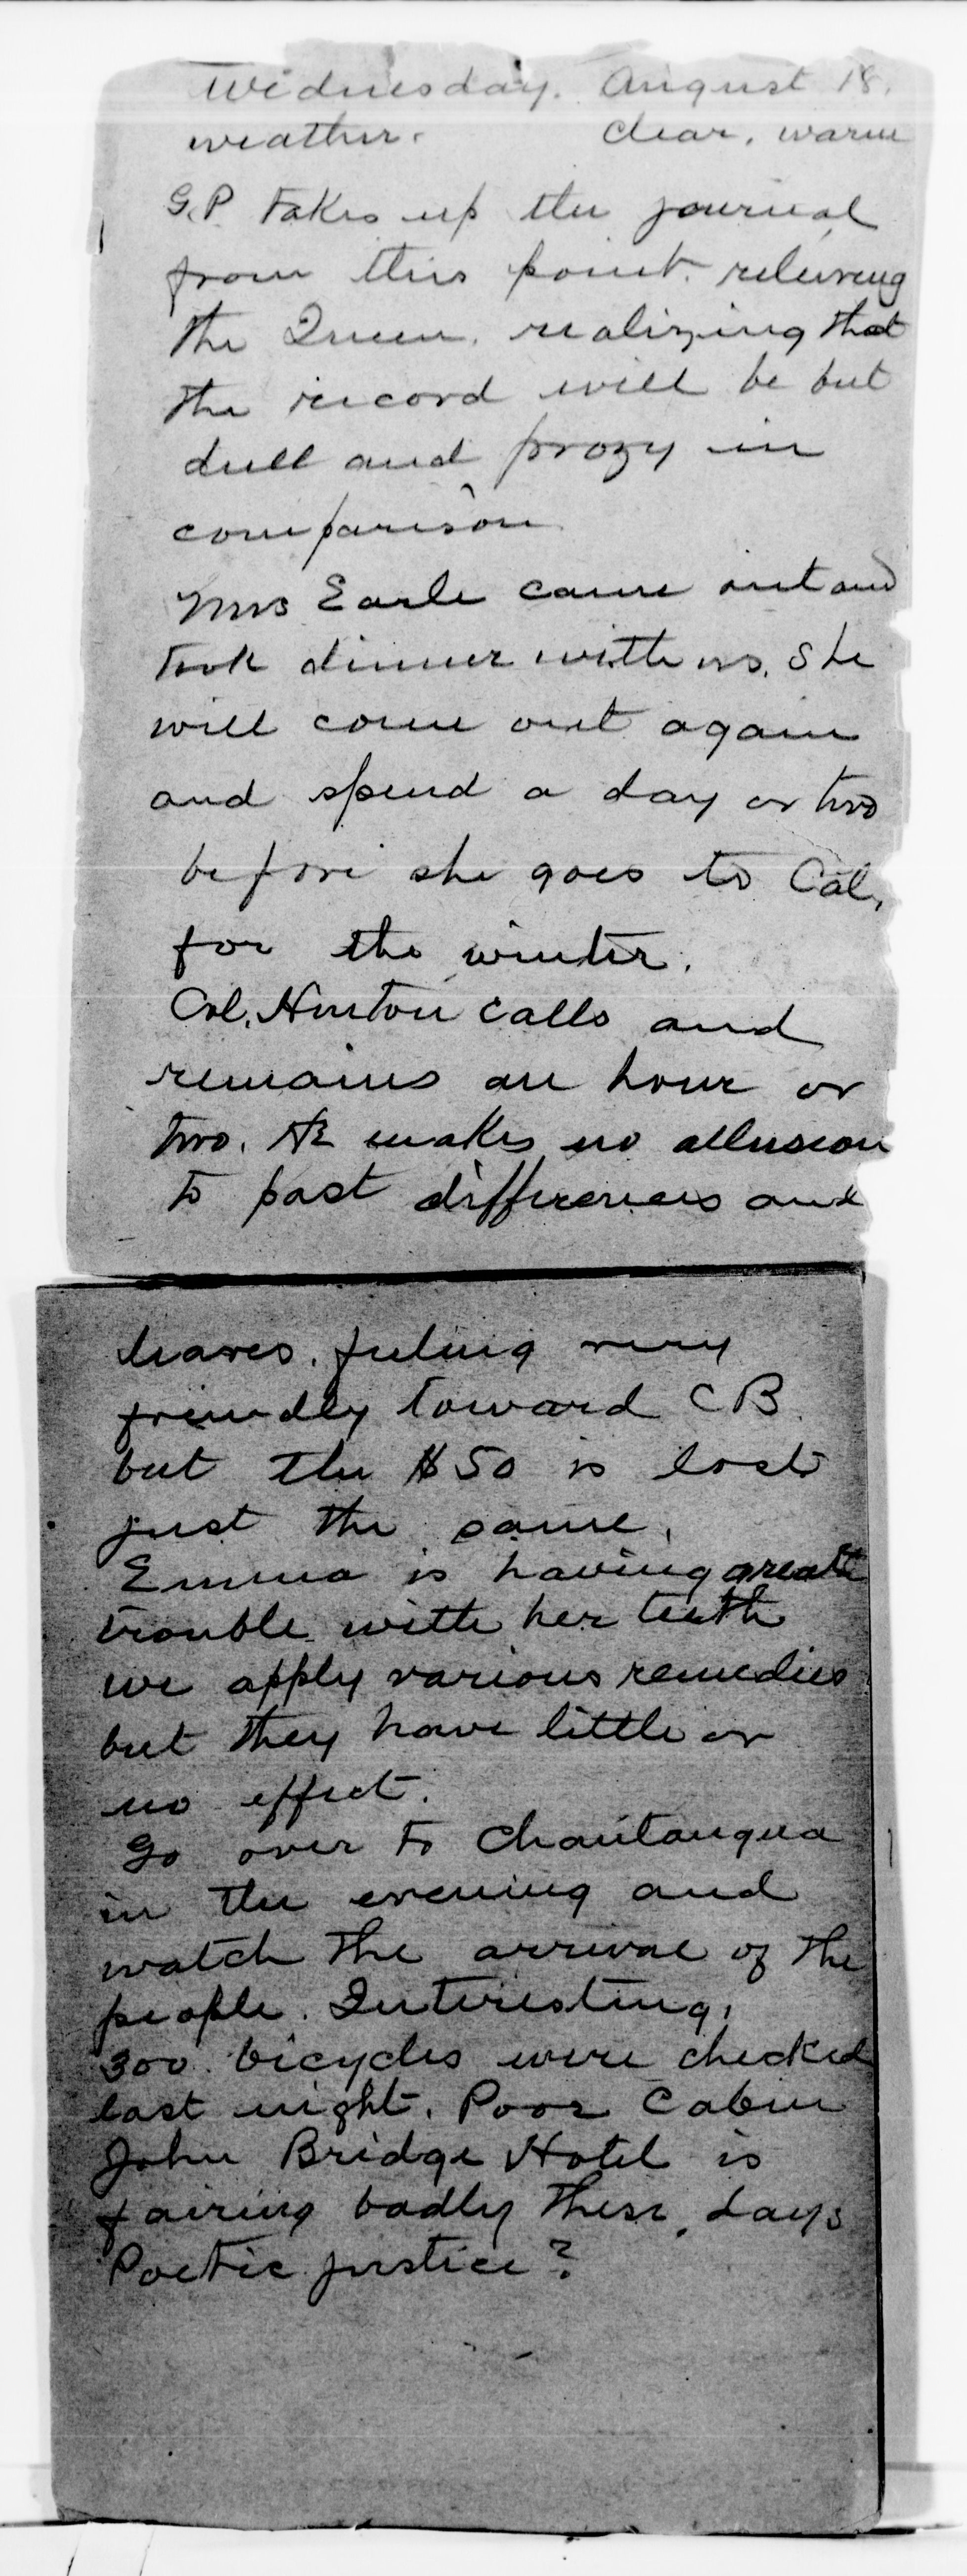 Wednesday. August 18.
weather. Clear, warm
G.P. takes up the journal
from this point. relieving
the Queen. realizing that
the record will be but
dull and prozy in
comparison
Mrs Earle came out and
took dinner with us. She
will come out again
and spend a day or two
before she goes to Cal.
for the winter.
Col. Hinton calls and
remains an hour or
two. He makes no allusion
to past differences and
leaves, feeling very
friendly toward CB.
but the $50 is lost
just the same.
Emma is having great
trouble with her teeth
we apply various remedies
but they have little or
no effect.
Go over to Chautauqua
in the evening and
watch the arrival of the
people. Interesting.
300 bicycles were checked
last night. Poor Cabin
John Bridge Hotel is
fairing badly these days
Poetic justice?